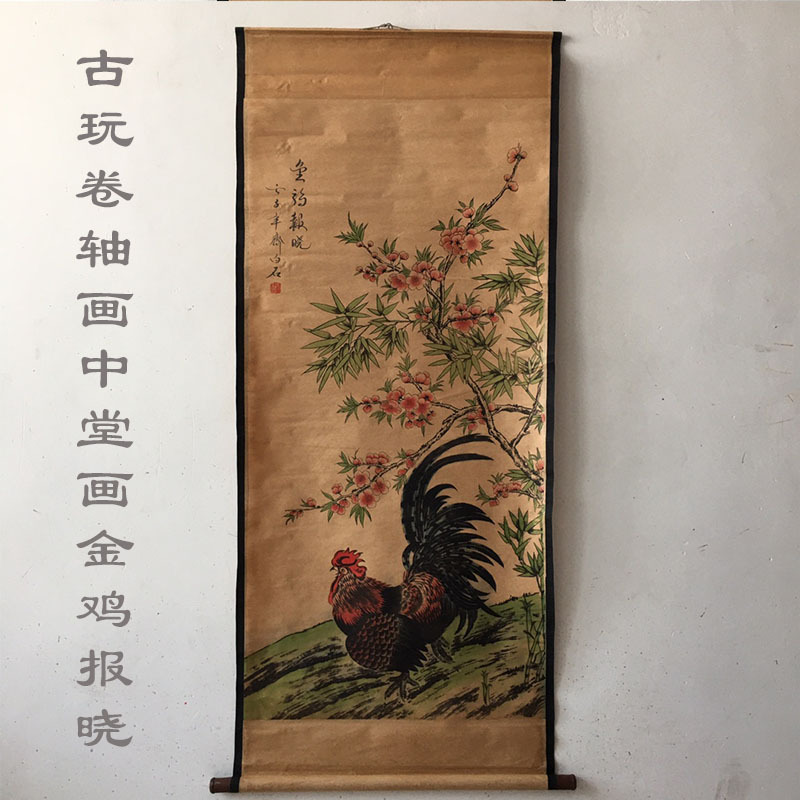 古玩卷轴画中堂画金鸡报晓
金鷄報曉
年齊白石